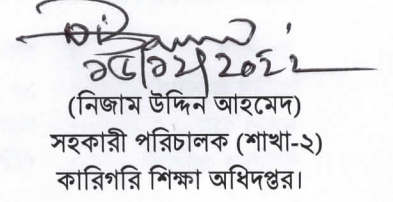 (নিজাম উদ্দিন আহমেদ)
সহকারী পরিচালক (শাখা-২)
কারিগরি শিক্ষা অধিদপ্তর।